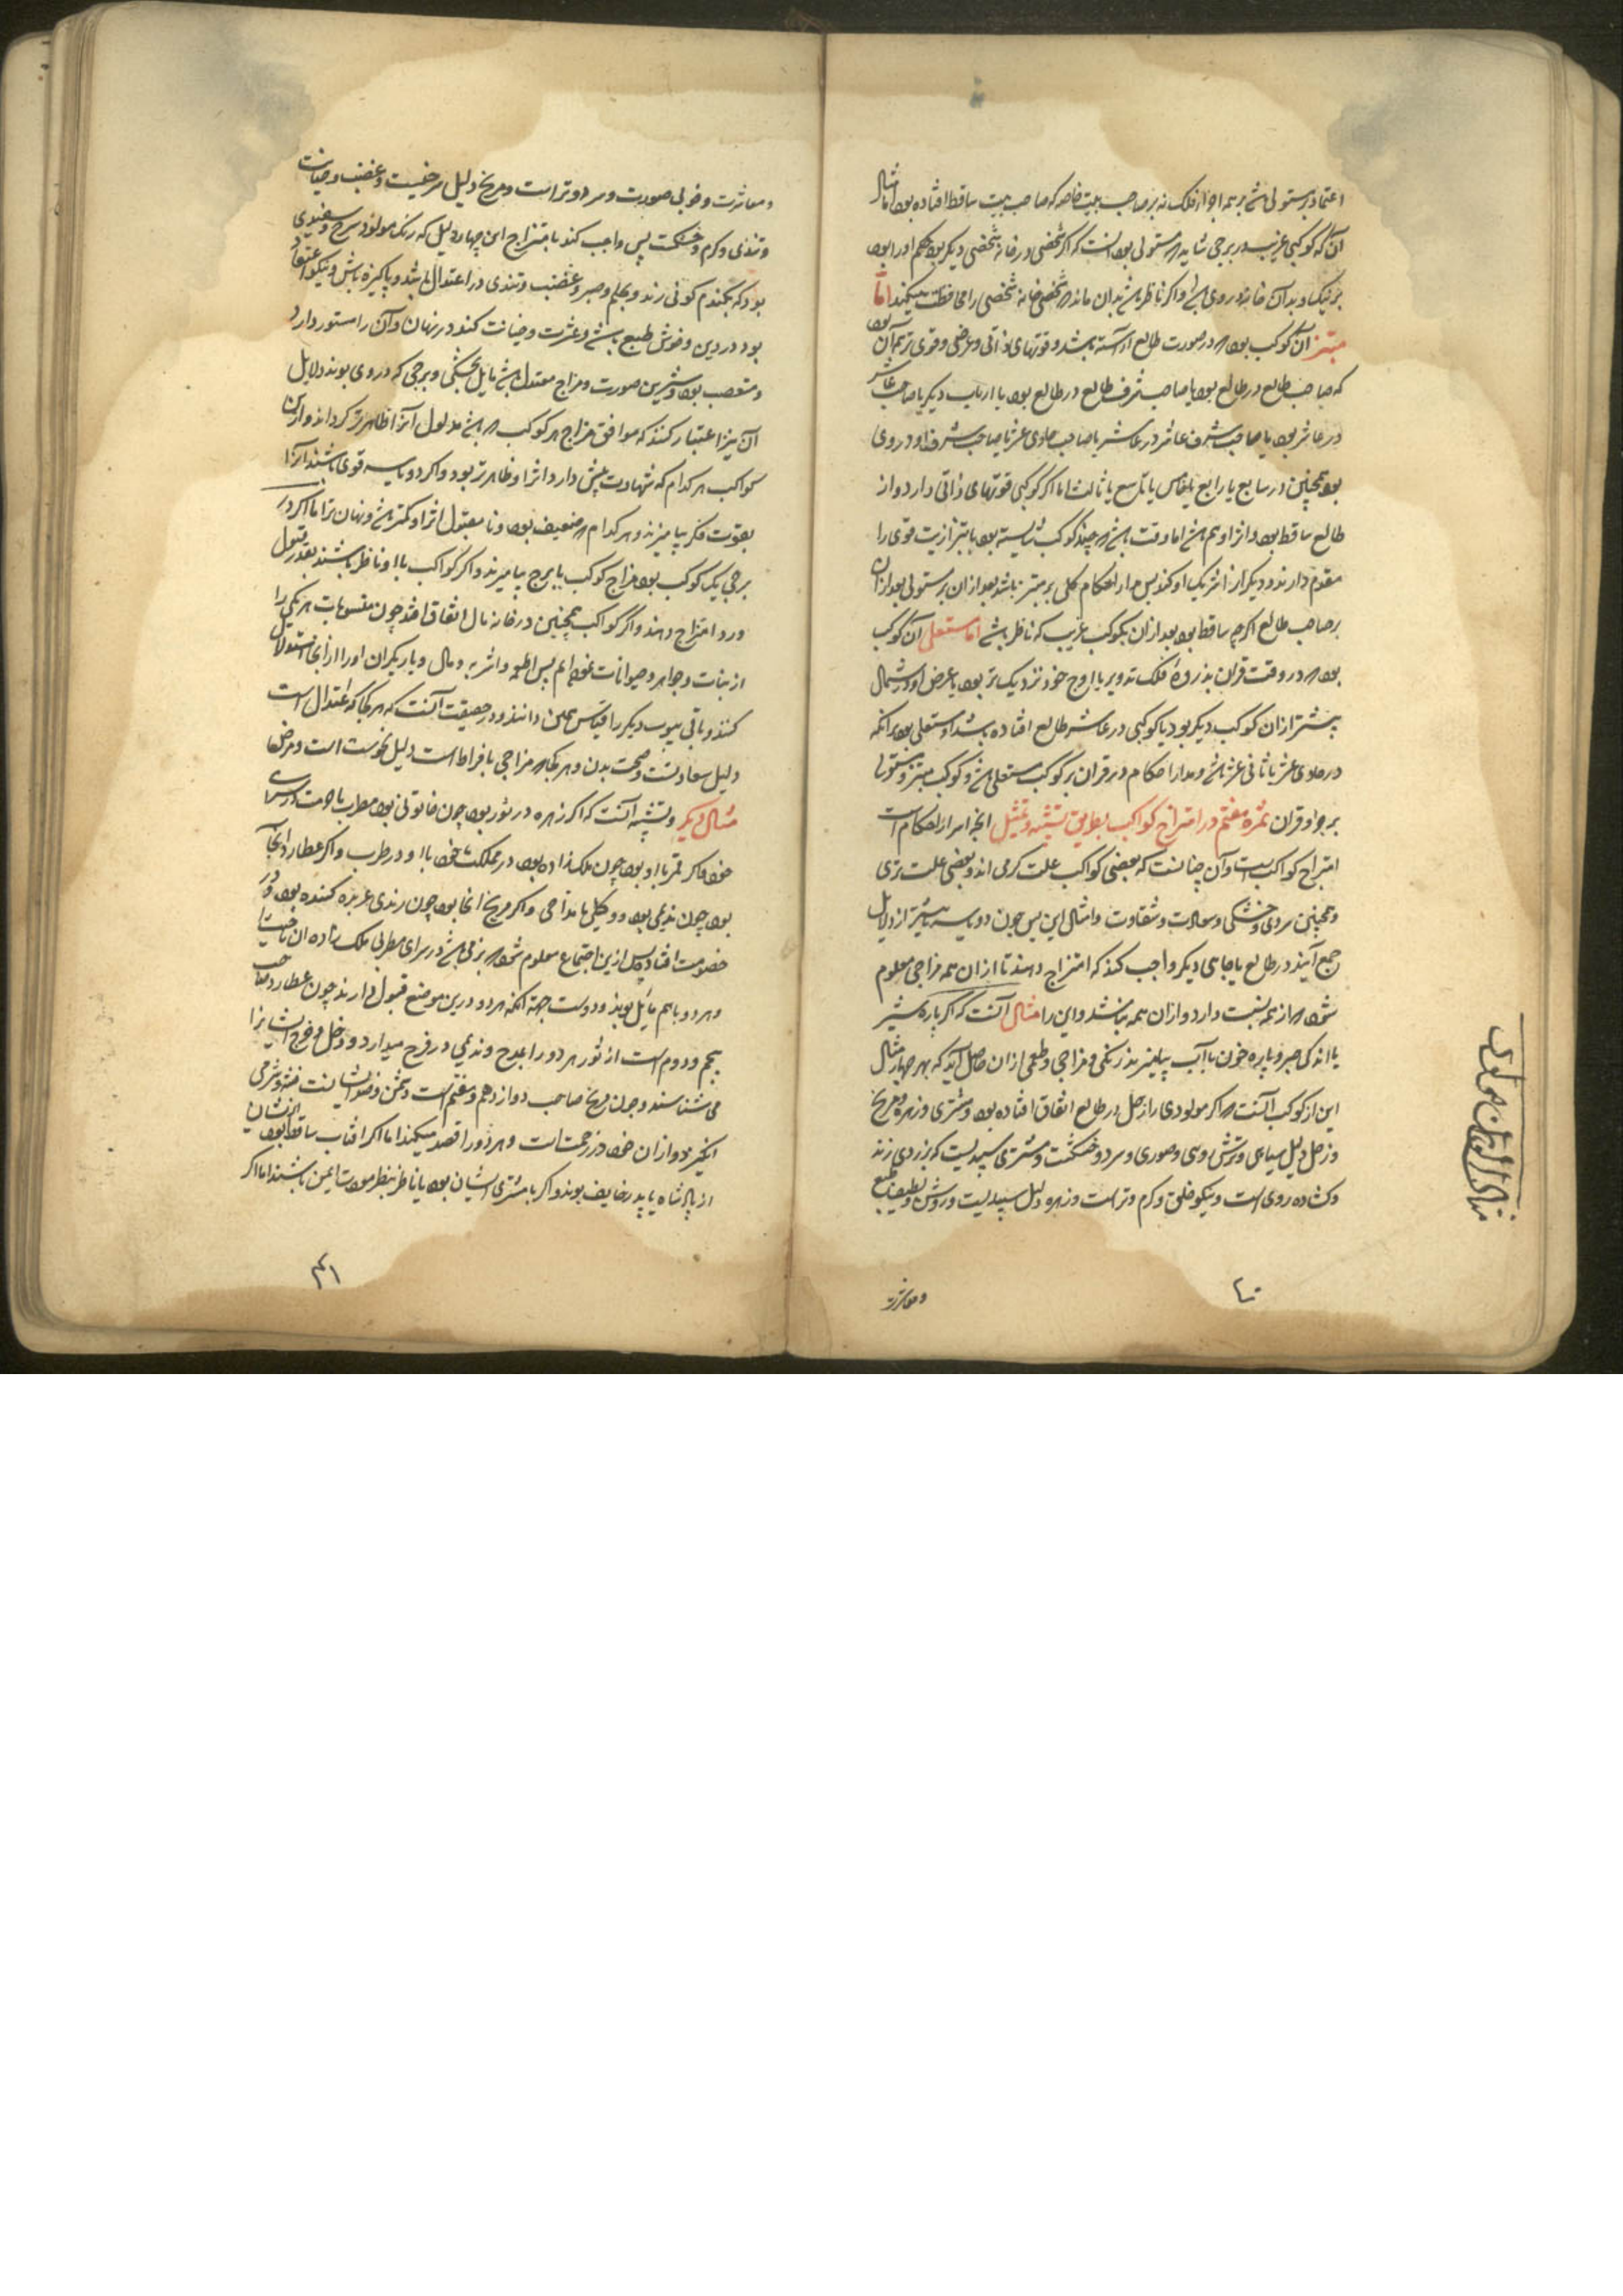 اعتماد بر مستولی باشد بر همه اجزاء فلک نه بر صاحب بیت خاصه که صاحب بیت ساقط افتاده بود اما مثال
آنکه کوکبی غریب در برجی شاید که مستولی بود آنست که اگر شخصی در خانه شخصی دیگر بود حکم او را بود
بر نیک و بد آن خانه
مبتز آن کوکب بود که در صورت طالع آراسته باشد و قوتهای ذاتی و عرضی و قوی ترین آن بود
که صاحب طالع در طالع بود یا صاحب شرف طالع در طالع بود یا ارباب دیگر یا صاحب عاشر
در عاشر بود یا صاحب شرف عاشر در عاشر یا صاحب حادی عشر یا صاحب شرف او در وی
بود همچنین در سابع یا رابع یا خامس یا تاسع یا ثالث اما اگر کوکبی قوتهای ذاتی دارد و از
طالع ساقط بود و اثر او هم باشد اما وقت باشد که چند کوکب شایسته بود
مقدم دارند و دیگر از اثر یک او کنند پس مدار احکام کلی بر مبتز باشد بعد از آن بر مستولی بعد از آن
بر صاحب طالع اگرچه ساقط بود بعد از آن بکوکب غریب که ناظر باشد اما مستعلی آن کوکب
بود که در وقت قران بذروه فلک تدویر یا اوج خود نزدیک تر بود یا عرض او در شمال
بیشتر از آن کوکب دیگر بود یا کوکبی در عاشر طالع افتاده باشد او مستعلی بود بر آنکه
در حادی عشر یا ثانی عشر باشد و مدار احکام در قران بر کوکب مستعلی باشد و کوکب مبتز و مستولی
بر جزو قران ثمره هفتم در امتزاج کواکب بطریق تشبیه و تمثیل آنچه اسرار احکام است
امتزاج کواکب است و آن چنانست که بعضی کواکب علت گرمی اند و بعضی علت تری
و همچنین سردی و خشکی و سعادت و شقاوت و امثال این پس چون دو یا سه یا بیشتر از دلایل
جمع آیند در طالع یا جاهی دیگر واجب کند که امتزاج دهند تا از آن همه مزاجی معلوم
شود که از همه نسبت دارد و از آن همه نباشد و این را مثال آنست که اگر پاره شیر
با اندکی صبر و پاره خون با آب بیامیزند رنگی و مزاجی و طعمی از آن حاصل آید که بهر چهار
این از کوکب آنست که اگر مولودی را زحل در طالع اتفاق افتاده بود و مشتری و زهره و مریخ
و زحل دلیل سیاهی و ترشی و سرد و خشکست و مشتری سپیدیست که بزردی زند
و گشاده روی است و نیکو خلق و گرم و تر است و زهره دلیل سپیدیست و روشنی و لطیف طبع
و معاشرت
و معاشرت و خوبی صورت و سرد و تر است و مریخ دلیل سرخیست و غضب و خیانت
و تندی و گرم و خشکست پس واجب کند بامتزاج این چهار دلیل که رنگ مولود سرخ و سفیدی
بود که بگندم گونی زند و بحلم و صبر و غضب و تندی در اعتدال باشد و پاکیزه باش و نیکو اعتقاد
بود در دین و خوش طبع باشد و عشرت و خیانت کند در نهان و آن را مستور دارد
و متعصب بود و شیرین صورت و مزاج معتدل باشد مایل بخشکی و برجی که در وی بوند دلایل
آن نیز اعتبار کنند که موافق مزاج هر کوکب که باشد مدلول آنرا ظاهرتر گرداند و از این
کواکب هر کدام که شهادت بیش دارد اثر او ظاهرتر بود و اگر دو یا سه قوی باشند آنرا
بقوت فکر بیامیزند و هر کدام که ضعیف بود و نا مقبول اثر او کمتر باشد و نهان تر اما اگر در
برجی یک کوکب بود مزاج کوکب با برج بیامیزند و اگر کواکب با او ناظر باشند بقدر قبول
و رد امتزاج دهند و اگر کواکب همچنین در خانه مال اتفاق افتد چون منسوبات هر یکی را
از نبات و جواهر و حیوانات
کنند و باقی بیوت دیگر را قیاس همین دانند و در حقیقت آنست که هر کجا که اعتدال است
دلیل سعادتست و صحت بدن و هر کجا که مزاجی بافراط است دلیل نحوست است و مرض اما
مثال دیگر و تشبیه آنست که اگر زهره در ثور بود چون خاتونی بود مطرب
خود و اگر قمر با او بود چون ملک زاده بود در مملکت خود با او در طرب و اگر عطارد آنجا
بود چون ندیمی بود و وکیلی یا مداحی و اگر مریخ آنجا بود چون رندی عربده کننده بود
خصومت افتاد پس از این اجتماع معلوم شود که بزمی باشد در سرای مطربی ملک زاده
و هر دو با هم مایل بوند و دوست جهة آنکه هر دو در این موضع قبول دارند چون عطارد صاحب
پنجم و دوم است از ثور هر دو را بمدح و ندیمی در فرح میدارد و دخل و خرج ایشانرا
می شناسد و چون مریخ صاحب دوازدهم و هفتم است دشمن و خصم ایشانست
انگیزد و از آن خود در زحمت است و هر دو را قصد میکند اما اگر آفتاب ساقط بود
از پادشاه یا پدر خایف بوند و اگر با مشتری ایشان بود یا ناظر بنظر مودت ایمن باشند اما اگر
۴۱